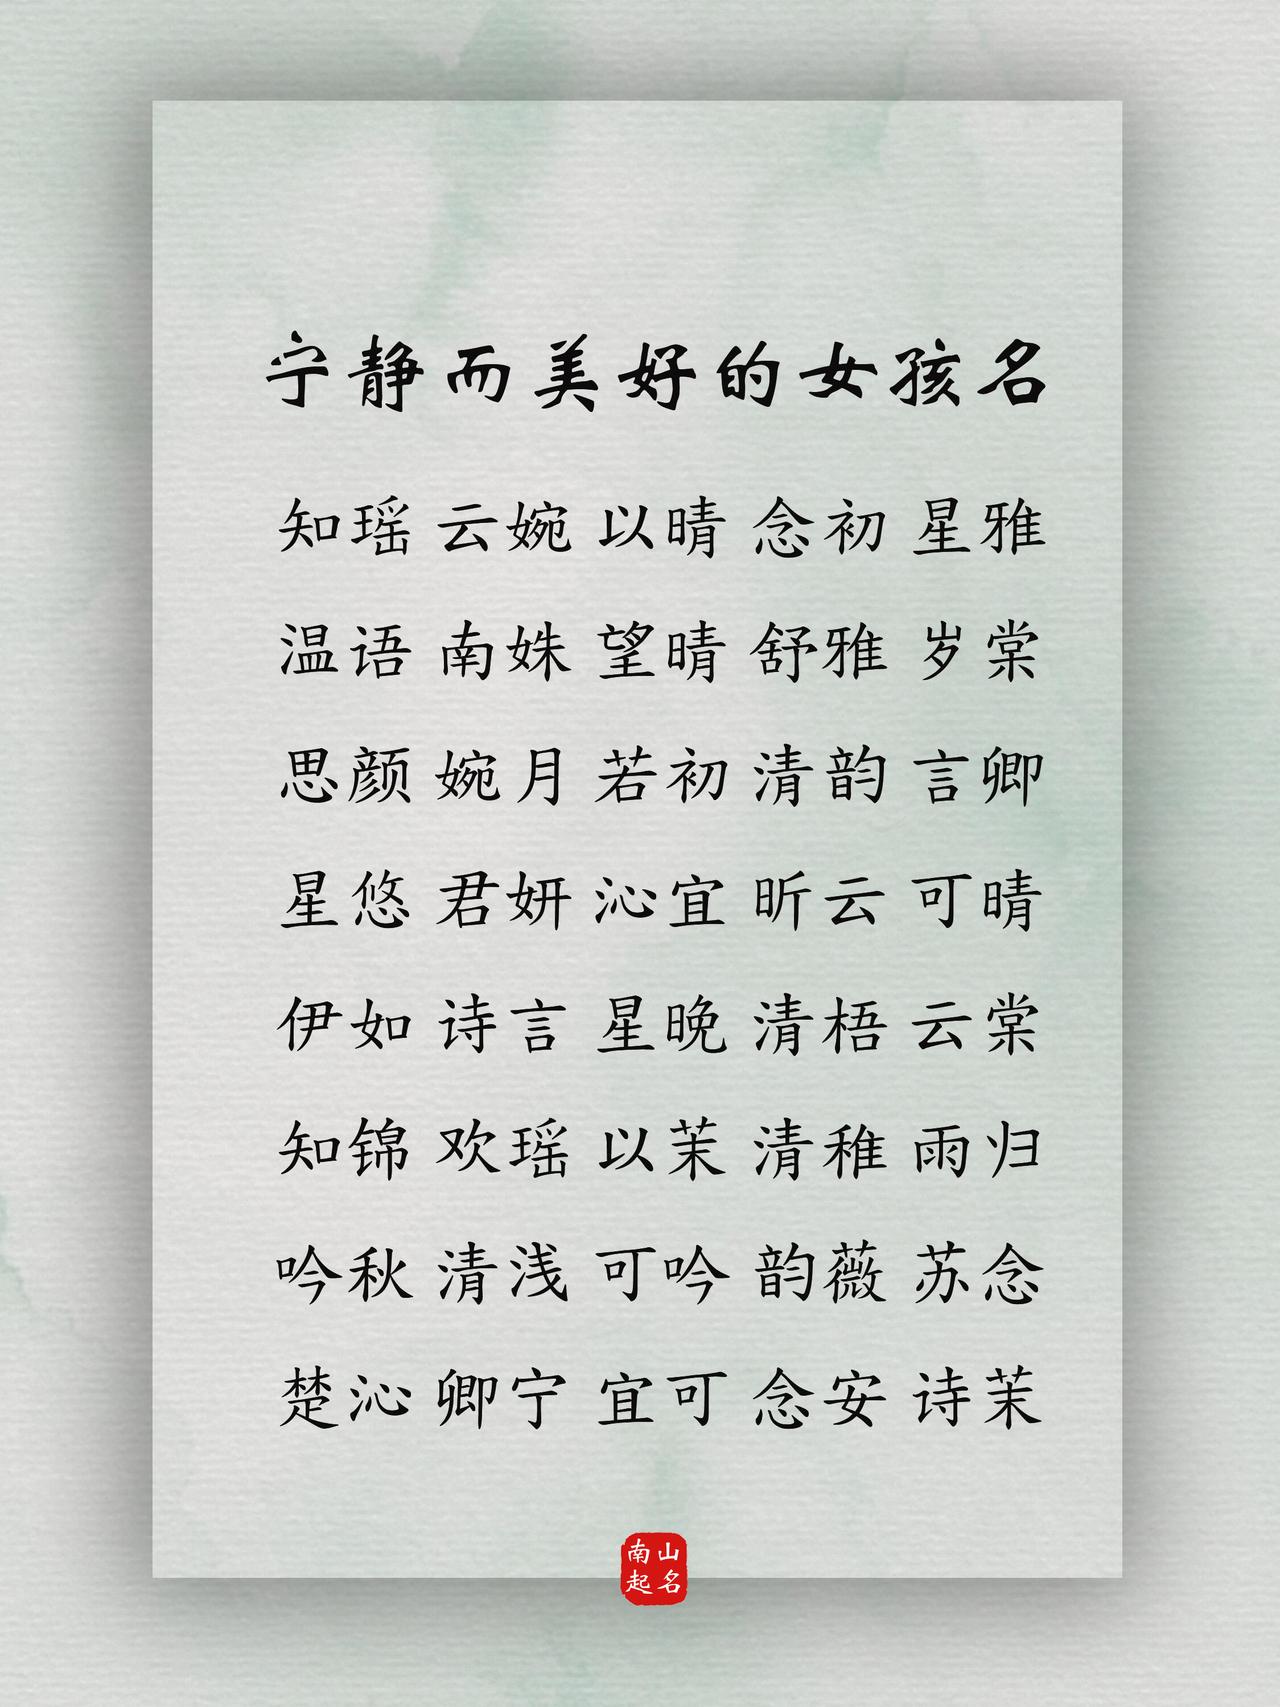 宁静而美好的女孩名
知瑶 云婉 以晴 念初 星雅
温语 南姝 望晴 舒雅 岁棠
思颜 婉月 若初 清韵 言卿
星悠 君妍 沁宜 昕云 可晴
伊如 诗言 星晚 清梧 云棠
知锦 欢瑶 以茉 清稚 雨归
吟秋 清浅 可吟 韵薇 苏念
楚沁 卿宁 宜可 念安 诗茉
南山
起名